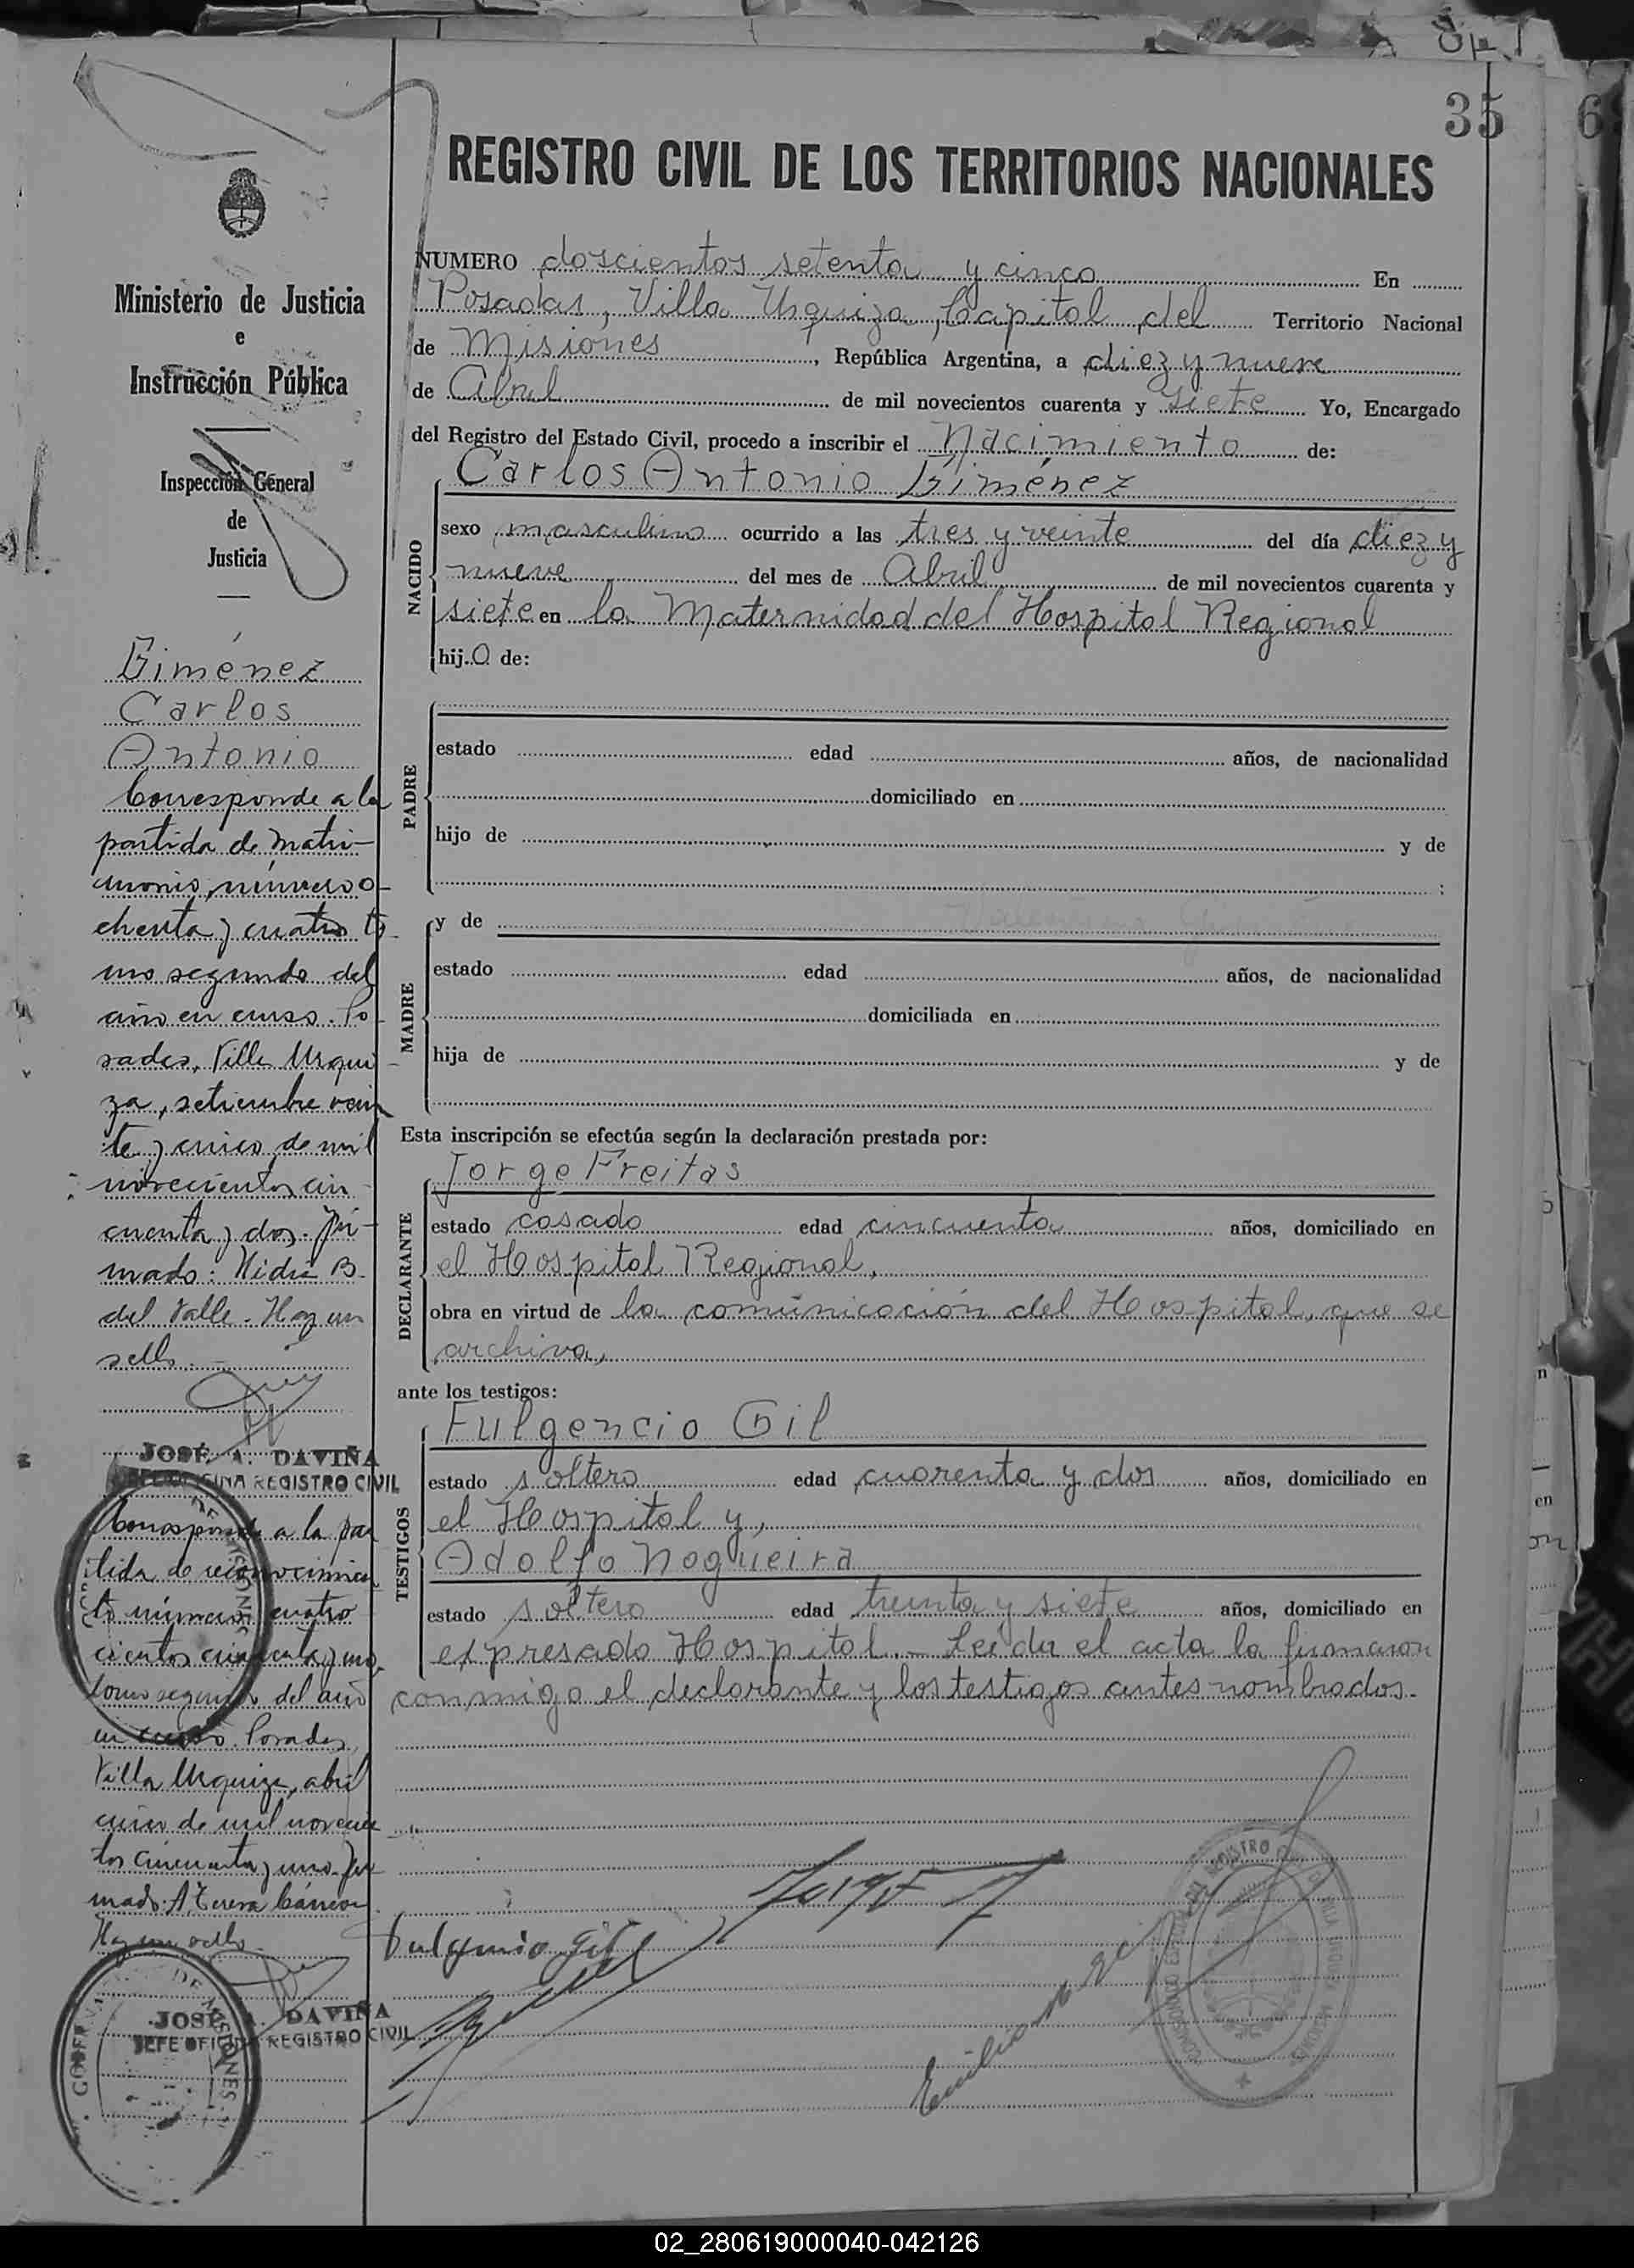 35
REGISTRO CIVIL DE LOS TERRITORIOS NACIONALES
NUMERO doscientos setenta y cinco En
Posadas, Villa Urquiza, Capital del Territorio Nacional
de Misiones, República Argentina, a diez y nueve
de Abril de mil novecientos cuarenta y siete Yo, Encargado
del Registro del Estado Civil, procedo a inscribir el Nacimiento de:
NACIDO
Carlos Antonio Giménez
sexo masculino ocurrido a las tres y veinte del día diez y
nueve del mes de Abril de mil novecientos cuarenta y
siete en la Maternidad del Hospital Regional
hij.o de:
PADRE
estado edad años, de nacionalidad
domiciliado en
hijo de y de
:
MADRE
y de
estado edad años, de nacionalidad
domiciliada en
hija de y de
Esta inscripción se efectúa según la declaración prestada por:
DECLARANTE
Jorge Freitas
estado casado edad cincuenta años, domiciliado en
el Hospital Regional,
obra en virtud de la comunicación del Hospital, que se
archiva,
ante los testigos:
TESTIGOS
Fulgencio Gil
estado soltero edad cuarenta y dos años, domiciliado en
el Hospital y,
Adolfo Nogueira
estado soltero edad treinta y siete años, domiciliado en
expresado Hospital.- Leida el acta la firmaron
conmigo el declarante y los testigos antes nombrados.-
Fulgencio Gil
Ministerio de Justicia
e
Instrucción Pública
Inspección General
de
Justicia
Giménez
Carlos
Antonio
Corresponde a la
partida de matri-
monio, número o-
chenta y cuatro to-
mo segundo del
año en curso. Po-
sadas, Villa Urqui-
za, setiembre vein
te y cinco de mil
novecientos cin-
cuenta y dos. Fir-
mado: Nidia B.
del Valle. Hay un
sello.
JOSÉ A. DAVIÑA
JEFE OFICINA REGISTRO CIVIL
Corresponde a la par
tida de reconocimien
to número cuatro
cientos cincuenta y uno,
tomo segundo del año
en curso. Posadas,
Villa Urquiza, abril
cinco de mil novecien
tos cincuenta y uno. Fir-
mado: A. Teresa
Hay un sello.
JOSÉ A. DAVIÑA
JEFE OFICINA REGISTRO CIVIL
02_280619000040-042126